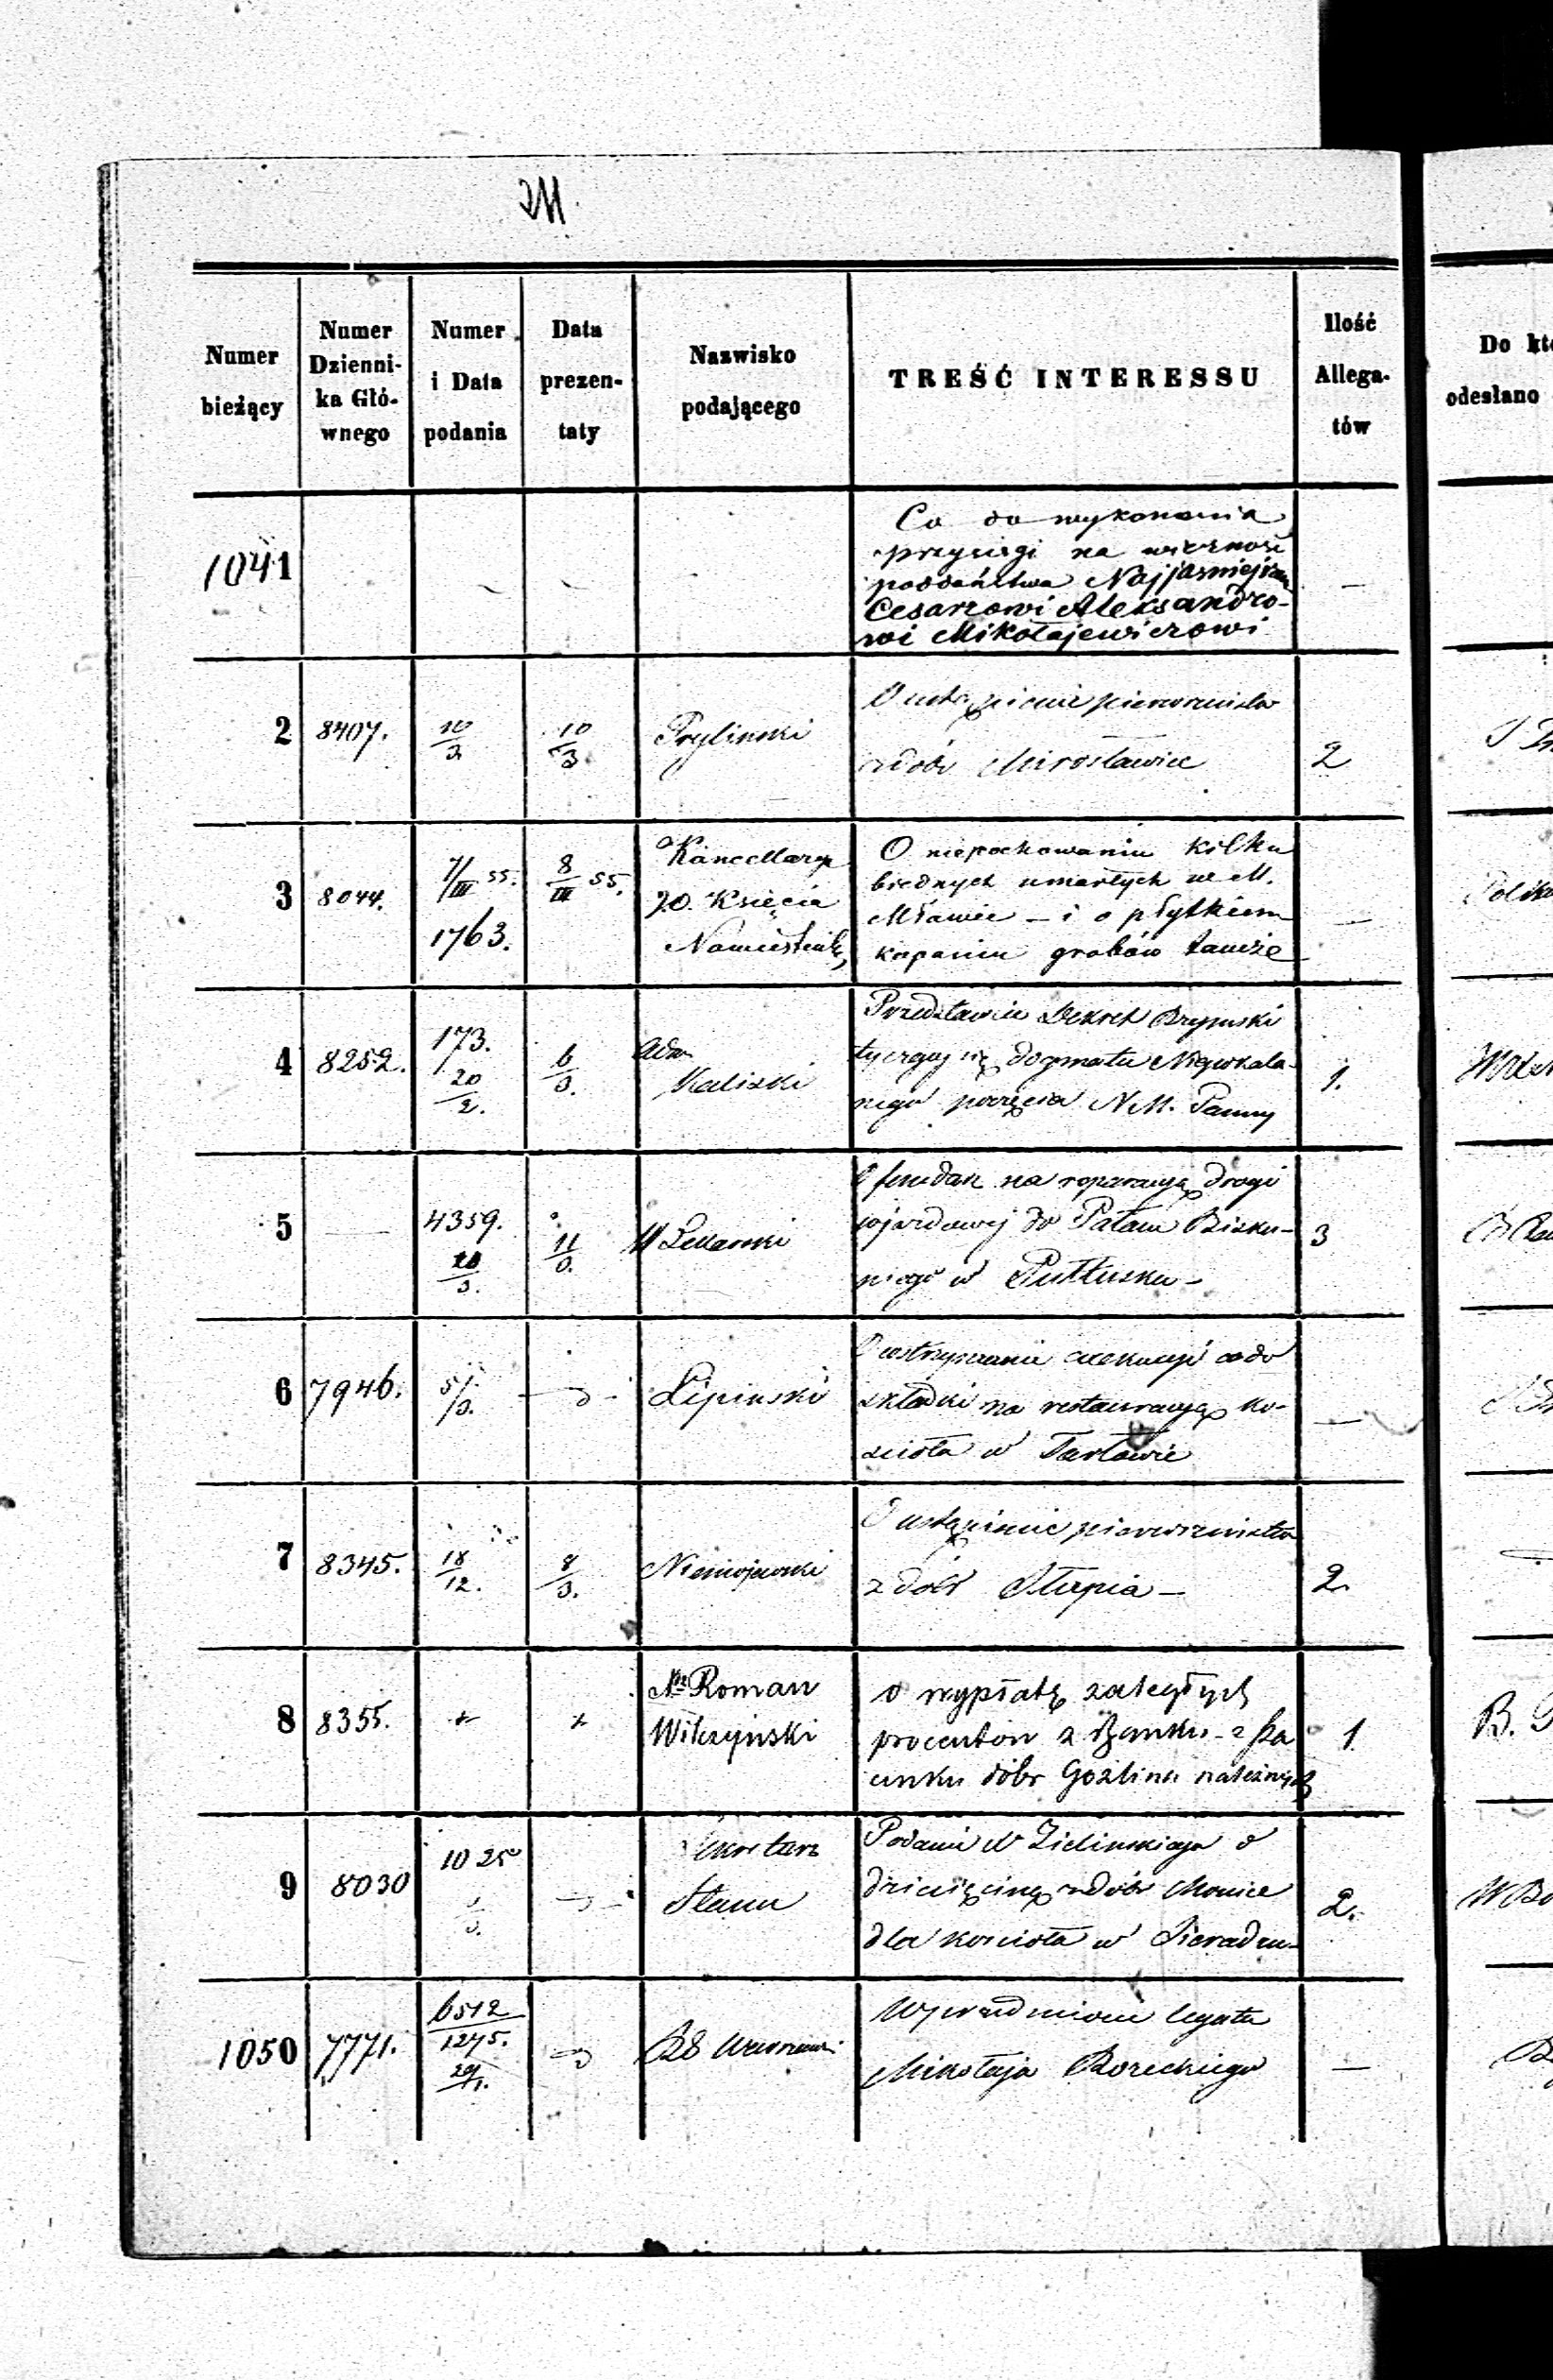 M.
Numer bieżący
Numer Dzienni-ka Głó-wnego
Numer i Data podania
Data prezen-taty
Nazwisko podającego
TREŚĆ INTERESSU
Ilość Allega-tów
Do kt
odesłano
1041
Co do wykonania
przysięgi na wierność
poddaństwa Najjaśniejszemu
Cesarzowi Aleksandro-
wi Mikołajewiczowi
—
2 8407. 10/3 10/3
O ustąpienie pierwszeństwa
z dóbr Mirosławice
2
3 8044. 7/III 55. 1763. 8/III 55.
Kancellarya
J.O. Księcia
Namiestnika
O niepochowaniu kilku
biednych umarłych w M.
Mławie – i o płytkiem
kopaniu grobów tamże
—
4 8252. 173. 20/2. 6/3.
Adm
Kaliski
Przedstawia Dekret Rzymski
tyczący się dogmatu Niepokala-
nego poczęcia N M. Panny
1.
5 — 4359. 10/3. 11/3.
O fundusz na reparacyą drogi
wjazdowej do Pałacu Bisku-
piego w Pułtusku –
3
6 7946. 5/3.
Lipinski
O wstrzymanie exekucyi co do
składki na restauracyą ko-
ścioła w Tarłowie
—
7 8345. 18/12. 8/3.
Niemojewski
O ustąpienie pierwszeństwa
z dóbr Słupia –
2.
8 8355. + +
Roman
Wilczyński
o wypłatę zaległych
procentów z Banku – z sza
cunku dóbr Goźlina należnych
1.
B.
9 8030 1025
Sekretarz
Stanu
Podanie W Zielinskiego o
dziesięcinę z dóbr Monice
dla kościoła w Sieradzu –
2.
1050 7771. 6512/1275. 29/1.
Wyjaśnienie legatu
Mikołaja Boreckiego
—